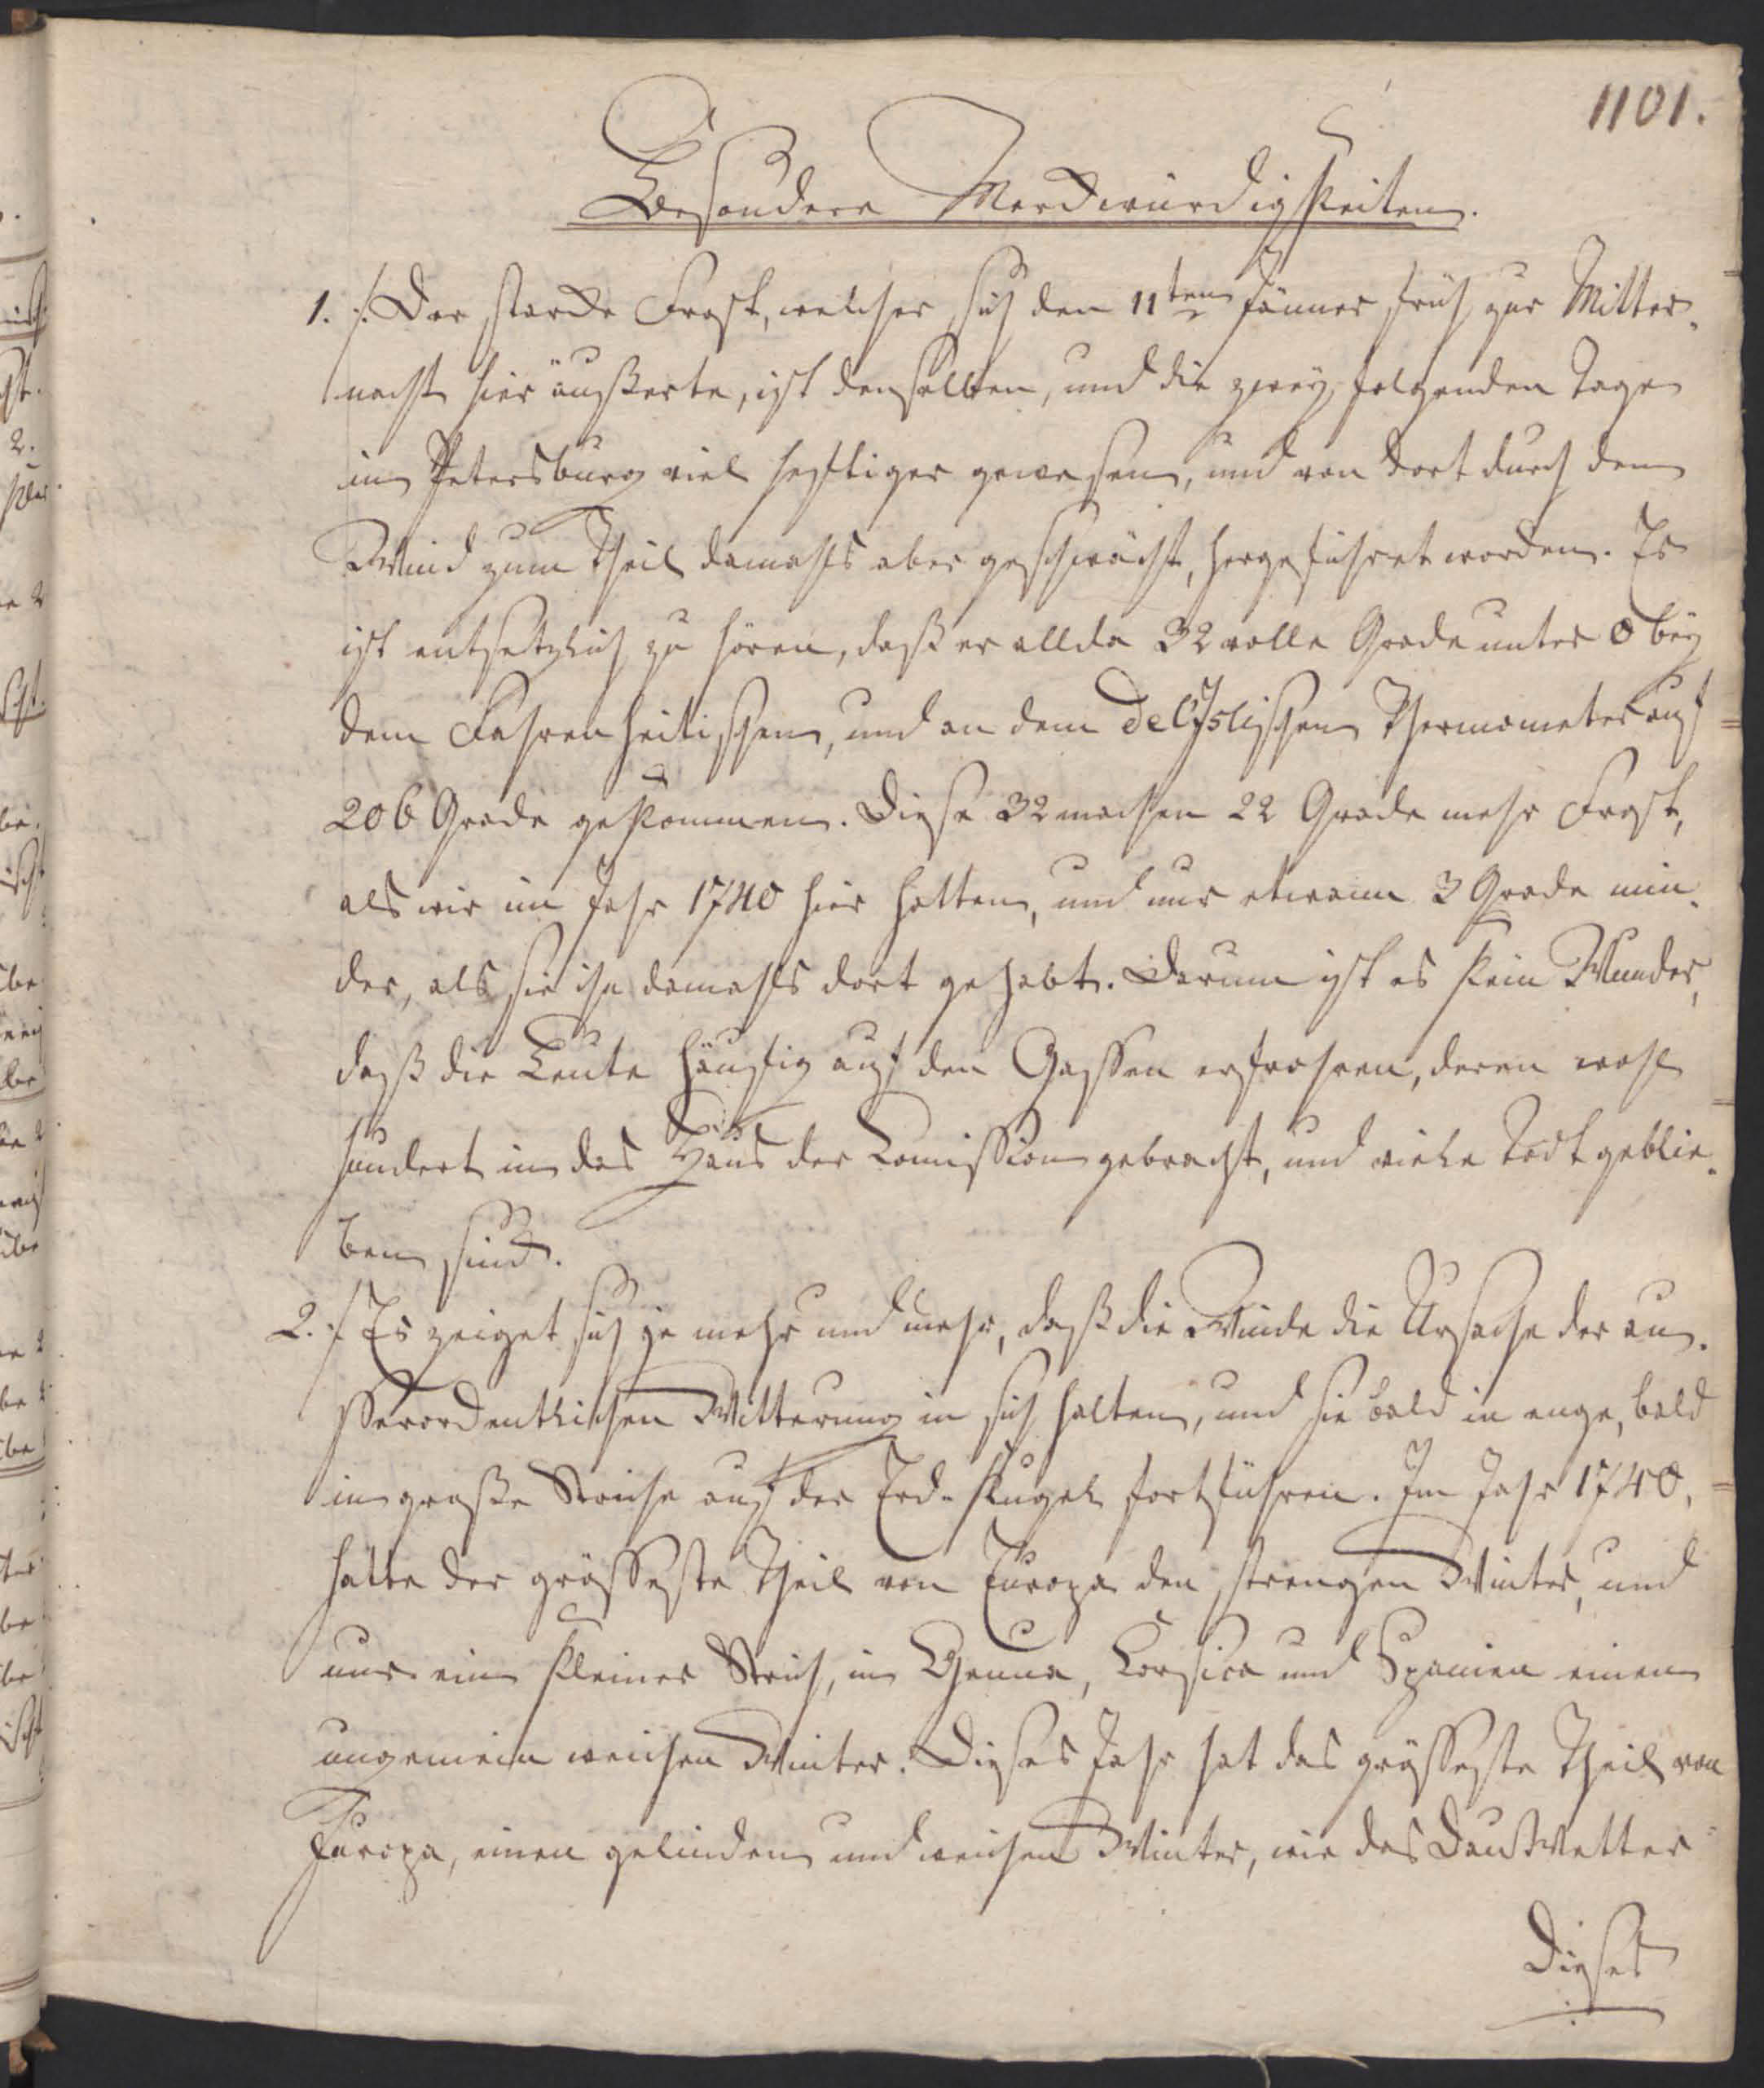 1101.
Besondere Merckwürdigkeiten.
1. :/. Der starcke Frost, welcher sich den 11ten Jänner früh zur Mitter-
nacht hier äußerte, ist denselben, und die zwey folgenden Tage
in Petersburg viel hefftiger gewesen, und von dort durch den
Wind zum Theil damahls aber geschwächt, hergeführet worden. Es
ist entsetzlich zu hören, daß er allda 32 volle Grade unter 0 bey
dem Fahrenheitischen, und an dem Thermometer auf
206 Grade gekommen. Diese 32 machen 22 Grade mehr Frost,
als wir im Jahr 1740 hier hatten, und nur etwann 3 Grade min-
der, als sie ihn damahls dort gehabt. Darum ist es kein Wunder,
daß die Leute häuffig auf den Gassen erfrohren, deren wohl
hundert in das Haus der Comission gebracht, und viele todt geblie-
ben sind.
2. :/. Es zeiget sich je mehr und mehr, daß die Winde die Ursache der au-
sserordentlichen Witterung in sich halten, und sie bald in enge, bald
in große Striche auf der Erd-Kugel fortführen. Im Jahr 1740,
hatte der grösseste Theil von Europa den strengen Winter, und
nur ein kleiner Strich, in Genua, Corsica und Spanien einen
ungemein weichen Winter. Dieses Jahr hat das grösseste Theil von
Europa, einen gelinden und weichen Winter, wie das Dau Wetter
Dieses